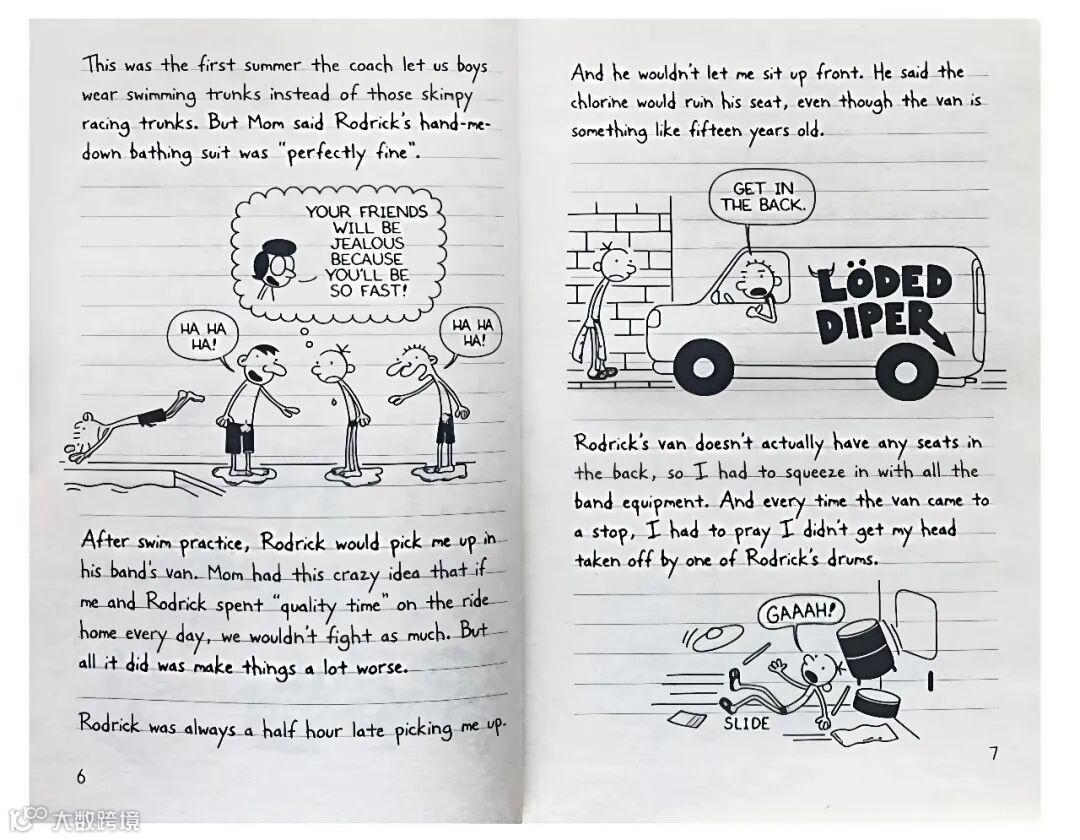 This was the first summer the coach let us boys
wear swimming trunks instead of those skimpy
racing trunks. But Mom said Rodrick's hand-me-
down bathing suit was "perfectly fine".
YOUR FRIENDS
WILL BE
JEALOUS
BECAUSE
YOU'LL BE
SO FAST!
HA HA
HA!
HA HA
HA!
After swim practice, Rodrick would pick me up in
his band's van. Mom had this crazy idea that if
me and Rodrick spent "quality time" on the ride
home every day, we wouldn't fight as much. But
all it did was make things a lot worse.
Rodrick was always a half hour late picking me up.
6
And he wouldn't let me sit up front. He said the
chlorine would ruin his seat, even though the van is
something like fifteen years old.
GET IN
THE BACK.
LÖDED
DIPER
Rodrick's van doesn't actually have any seats in
the back, so I had to squeeze in with all the
band equipment. And every time the van came to
a stop, I had to pray I didn't get my head
taken off by one of Rodrick's drums.
GAAAH!
SLIDE
7
大数跨境